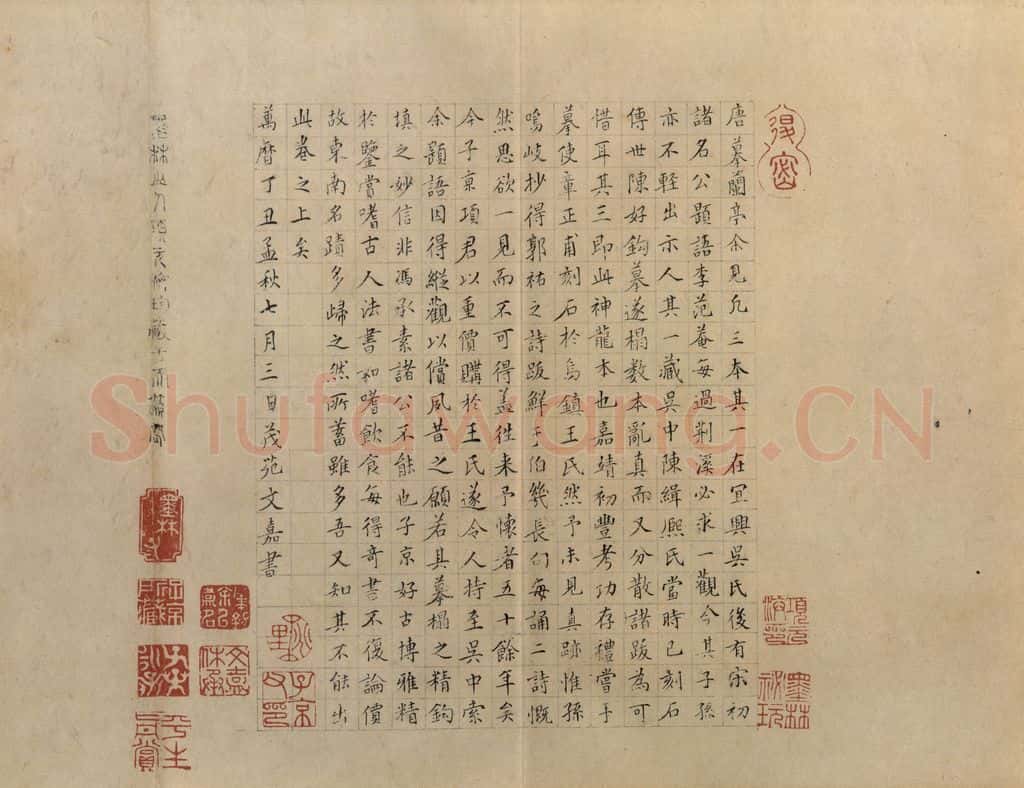 唐摹蘭亭余見凡三本其一在宜興吳氏後有宋初
諸名公題語李范菴每過荆溪必求一觀今其子孫
亦不輕出示人其一藏吳中陳緝熈氏當時已刻石
傳世陳好鈎摹遂搨數本亂真而又分散諸跋為可
惜耳其三即此神龍本也嘉靖初豐考功存禮嘗手
摹使章正甫刻石於烏鎮王氏然予未見真跡惟孫
鳴岐抄得郭祐之詩跋鮮于伯幾長句每誦二詩慨
然思欲一見而不可得盖往来予懷者五十餘年矣
今子京項君以重價購於王氏遂令人持至吳中索
余題語因得縱觀以償夙昔之願若其摹搨之精鈎
填之妙信非馮承素諸公不能也子京好古博雅精
於鑒賞嗜古人法書如嗜飲食每得奇書不復論價
故東南名蹟多歸之然所蓄雖多吾又知其不能出
此卷之上矣
萬曆丁丑孟秋七月三日茂苑文嘉書
墨林
子京
墨林
Shufawang.CN